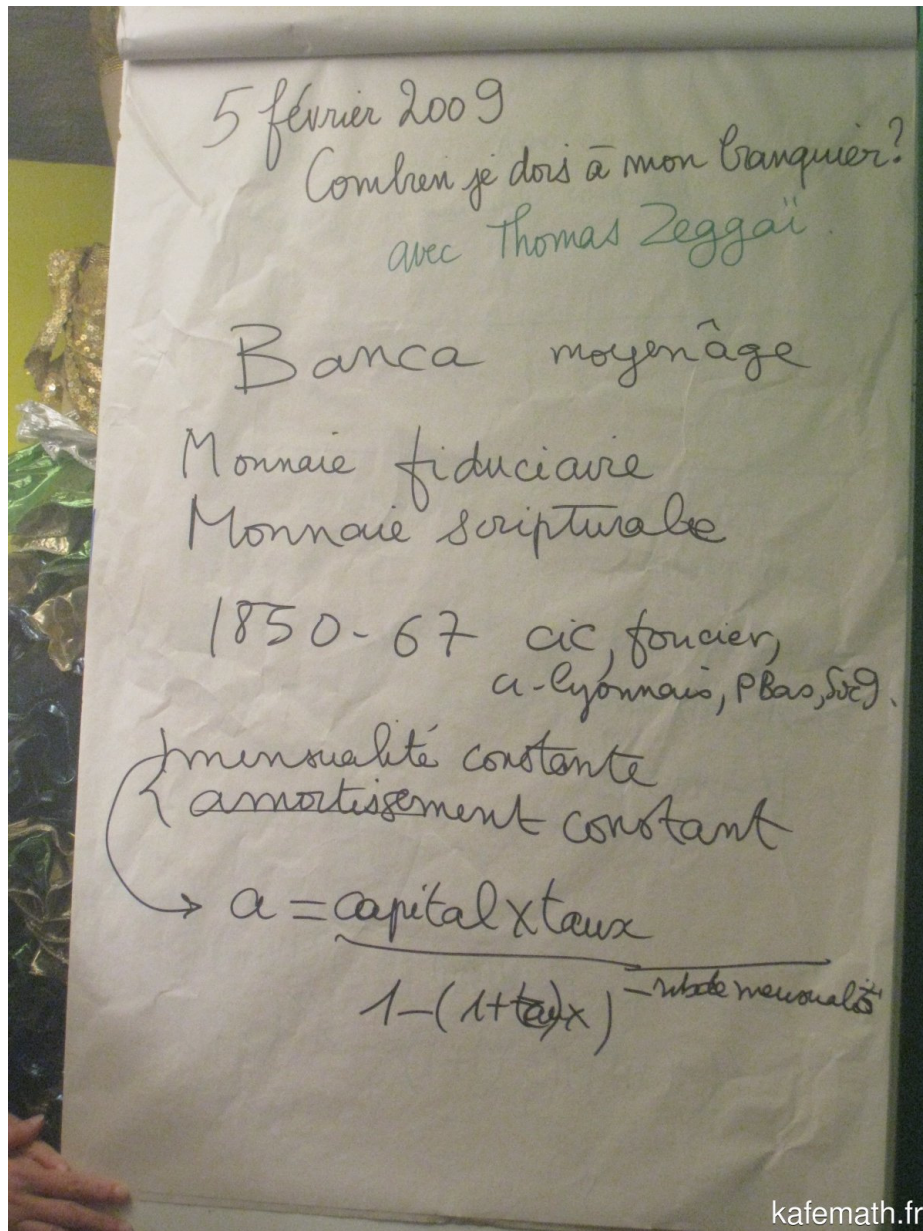 5 février 2009
Combien je dois à mon banquier?
avec Thomas Zeggaï.
Banca moyenâge
Monnaie fiduciaire
Monnaie scripturale
1850-67 cic, foncier,
lyonnais, PBas, Socg.
mensualité constante
amortissement constant
→ a = capital x taux
1-(1+taux)^-nb de mensualités
kafemath.fr